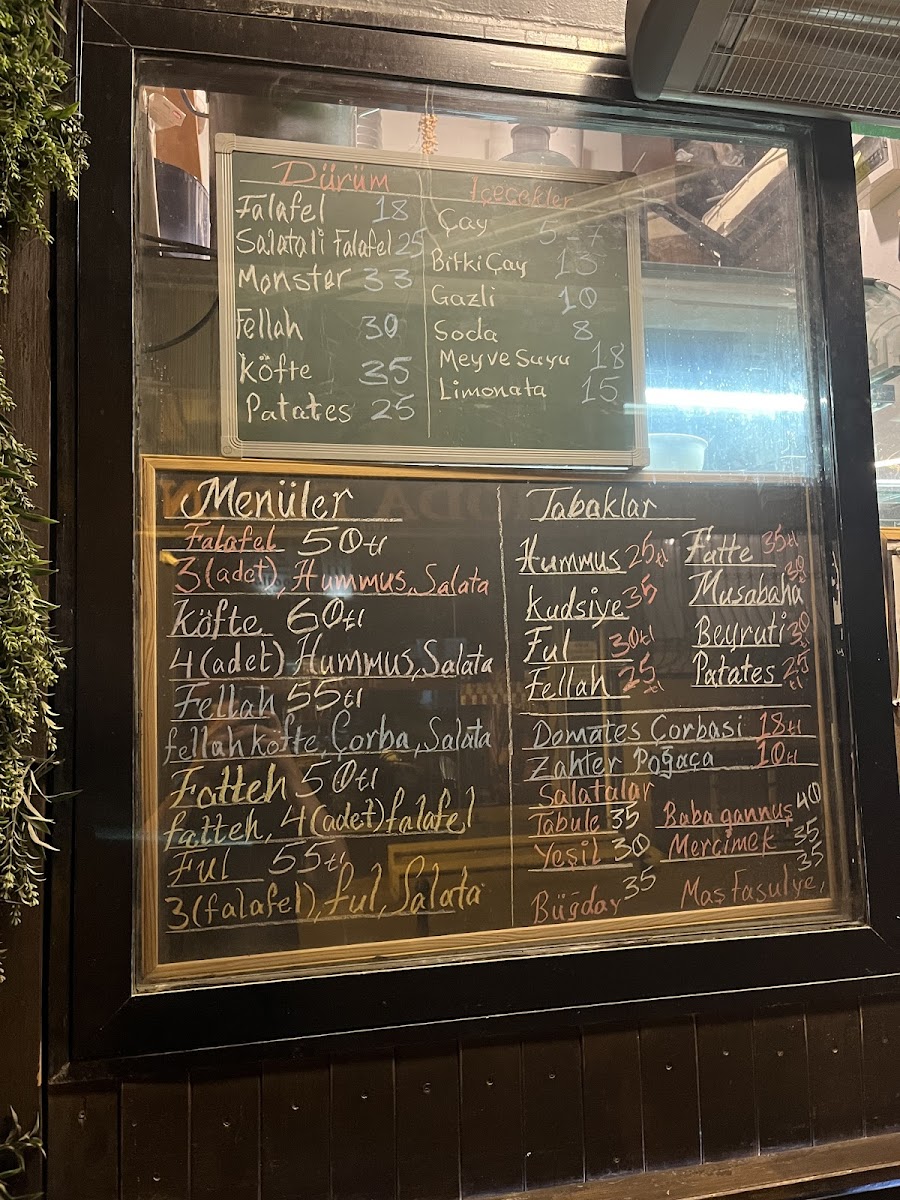 Dürüm
Falafel 18
Salatali Falafel 25
Monster 33
Fellah 30
Köfte 35
Patates 25
İçecekler
Çay 5-7
Bitki Çay 13
Gazli 10
Soda 8
Meyve Suyu 18
Limonata 15
Menüler
Falafel 50tl
3(adet), Hummus, Salata
Köfte 60tl
4(adet) Hummus, Salata
Fellah 55tl
fellah köfte, Çorba, Salata
Fatteh 50tl
fatteh, 4(adet) falafel
Ful 55tl
3(falafel), ful, Salata
Tabaklar
Hummus 25tl
Kudsiye 35
Ful 30tl
Fellah 25tl
Fatte 35tl
Musabaha 30
Beyruti 30
Patates 25tl
Domates Çorbasi 18tl
Zahter Poğaça 10tl
Salatalar
Tabule 35
Yeşil 30
Büğday 35
Baba gannuş 40
Mercimek 35
Maş Fasulye, 35